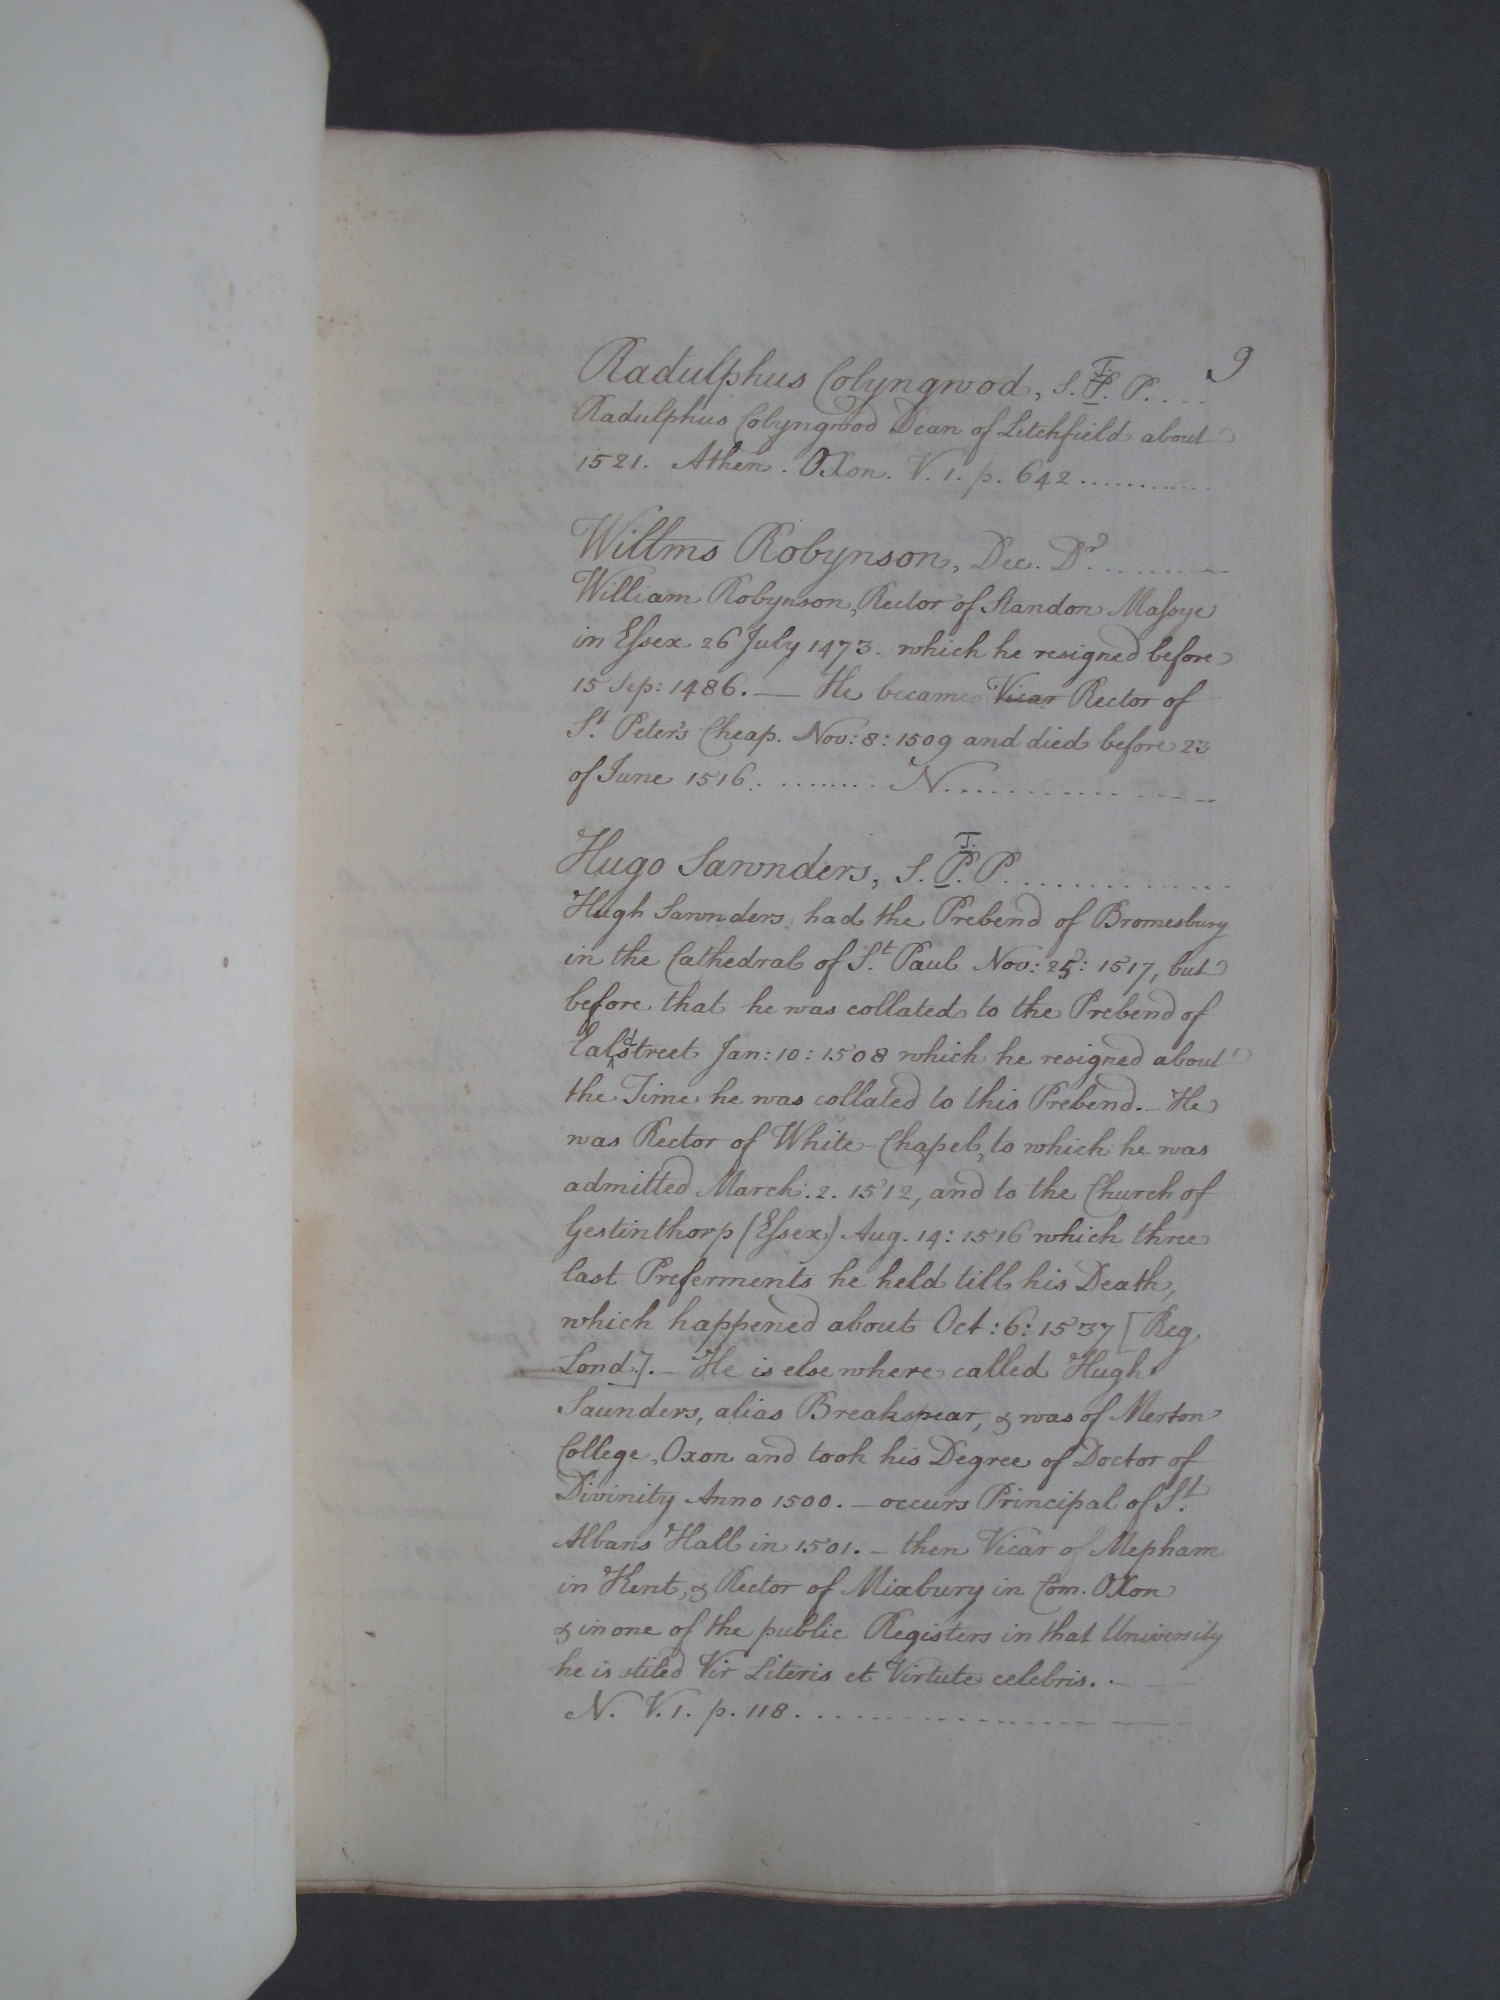 9
Radulphus Colyngwod, S. T. P. ....
Radulphus Colyngwod Dean of Litchfield about
1521. Athen. Oxon. V. 1. p. 642 ............
Willms Robynson, Dec. Dr. ..........
William Robynson, Rector of Standon Massye
in Essex 26 July 1473. which he resigned before
15 Sep: 1486. — He became Vicar Rector of
St. Peter's Cheap. Nov: 8: 1509 and died before 23
of June 1516. ........ N. ..................
Hugo Sawnders, S. T. P. P. ..............
Hugh Sawnders had the Prebend of Bromesbury
in the Cathedral of St. Paul Nov: 25: 1517, but
before that he was collated to the Prebend of
Ealdstreet Jan: 10: 1508 which he resigned about
the Time he was collated to this Prebend. — He
was Rector of White-Chapel, to which he was
admitted March. 2. 1512, and to the Church of
Gestinthorp (Essex) Aug. 14: 1516 which three
last Preferments he held till his Death,
which happened about Oct: 6: 1537 [Reg.
Lond.]. — He is elsewhere called Hugh
Saunders, alias Breakspear, & was of Merton
College, Oxon and took his Degree of Doctor of
Divinity Anno 1500. — occurs Principal of St.
Albans Hall in 1501. — then Vicar of Mepham
in Kent, & Rector of Mixbury in Com. Oxon
& in one of the public Registers in that University
he is stiled Vir Literis et Virtute celebris. . —
N. V. 1. p. 118. ....................